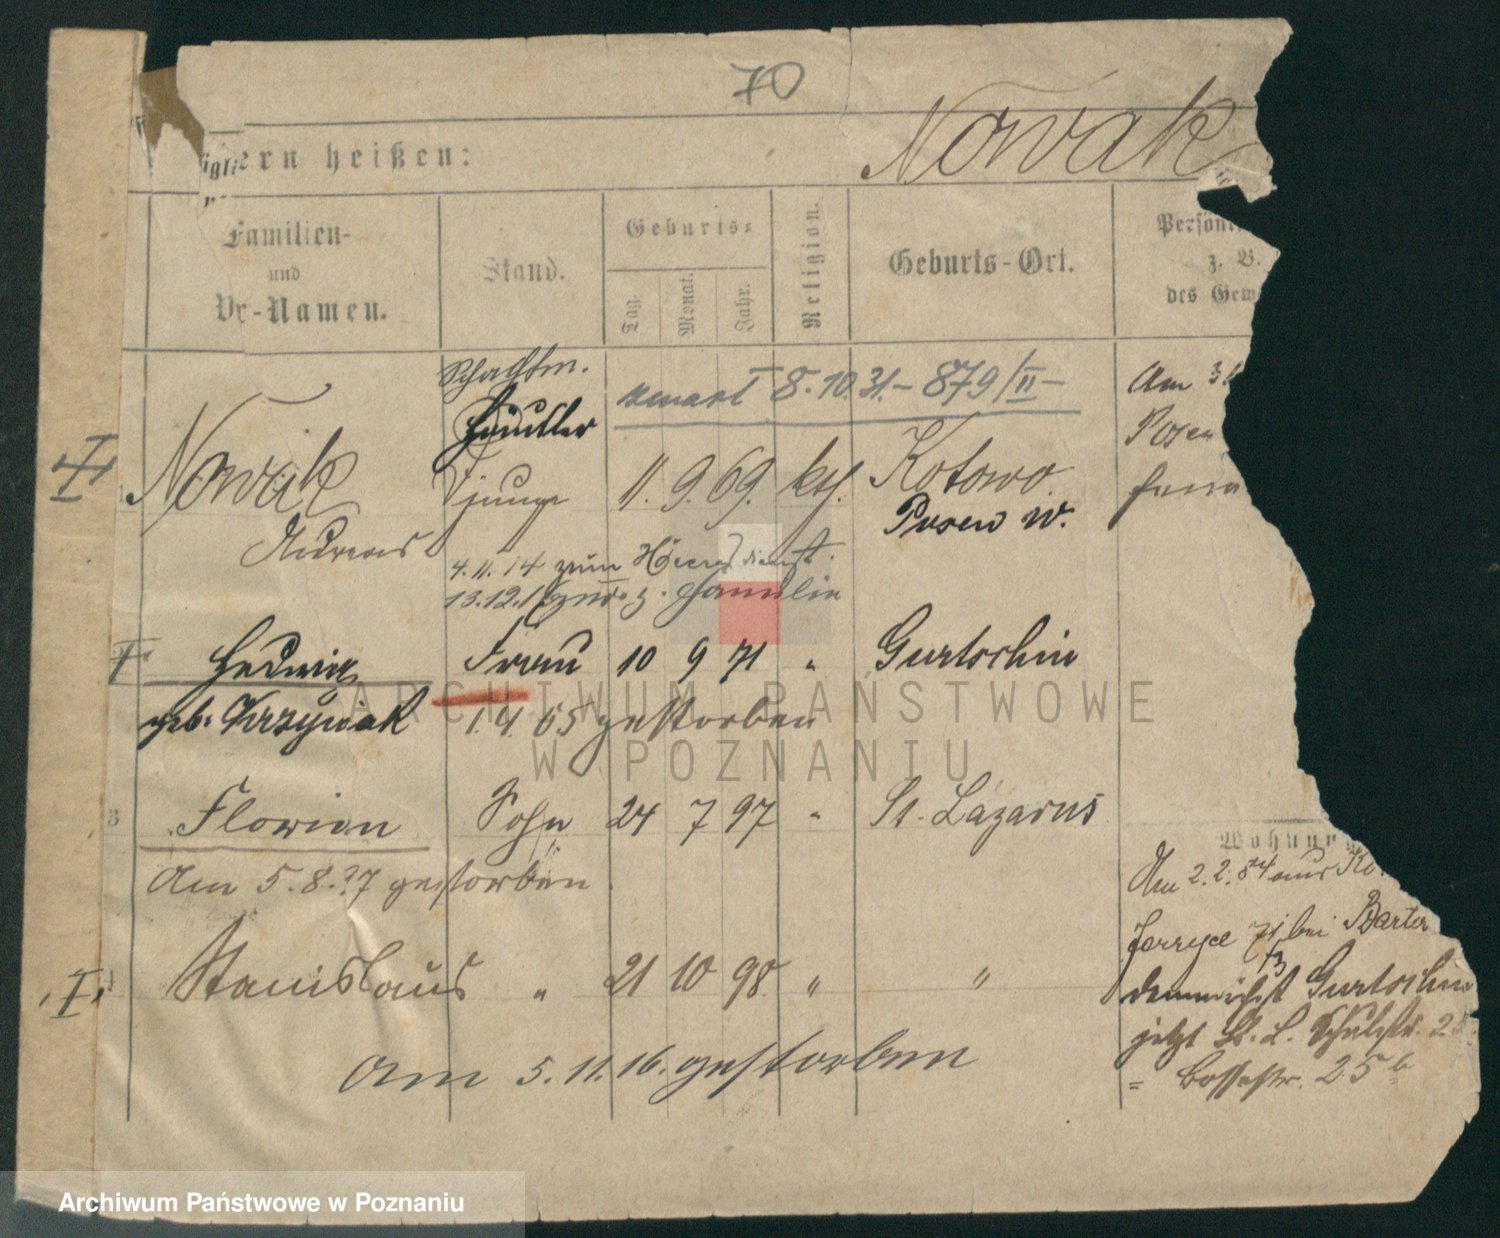 70
ern heißen:
Nowak
Familien-
und
Vor-Namen.
Stand.
Geburts-
Tag.
Monat.
Jahr.
Religion.
Geburts-Ort.
Persön
z. B.
des Gew
Schachtm.
Händler
zmarł 8.10.31.-879/II-
Am 3
Posen
Nowak
junge
11. 9. 69. kth. Kotowo
Posen W.
Andreas
4.11.14 zum Heeresdienst.
13.12.1 zur. z. Familie
Hedwig Frau 10 9 71 " Gurtschin
geb. Krzyniak 1.4.05 gestorben
ARCHIWUM PAŃSTWOWE
W POZNANIU
3 Florian Sohn 24 7 97 " St. Lazarus
Am 5.8.?7 gestorben
Wohnung
Am 2.2. aus Ko
71 bei Barter
Stanislaus " 21 10 98 " "
demnächst Gurtschin
jetzt St. L. Schulstr. 2
" 25 b
am 5.11.16. gestorben
Archiwum Państwowe w Poznaniu